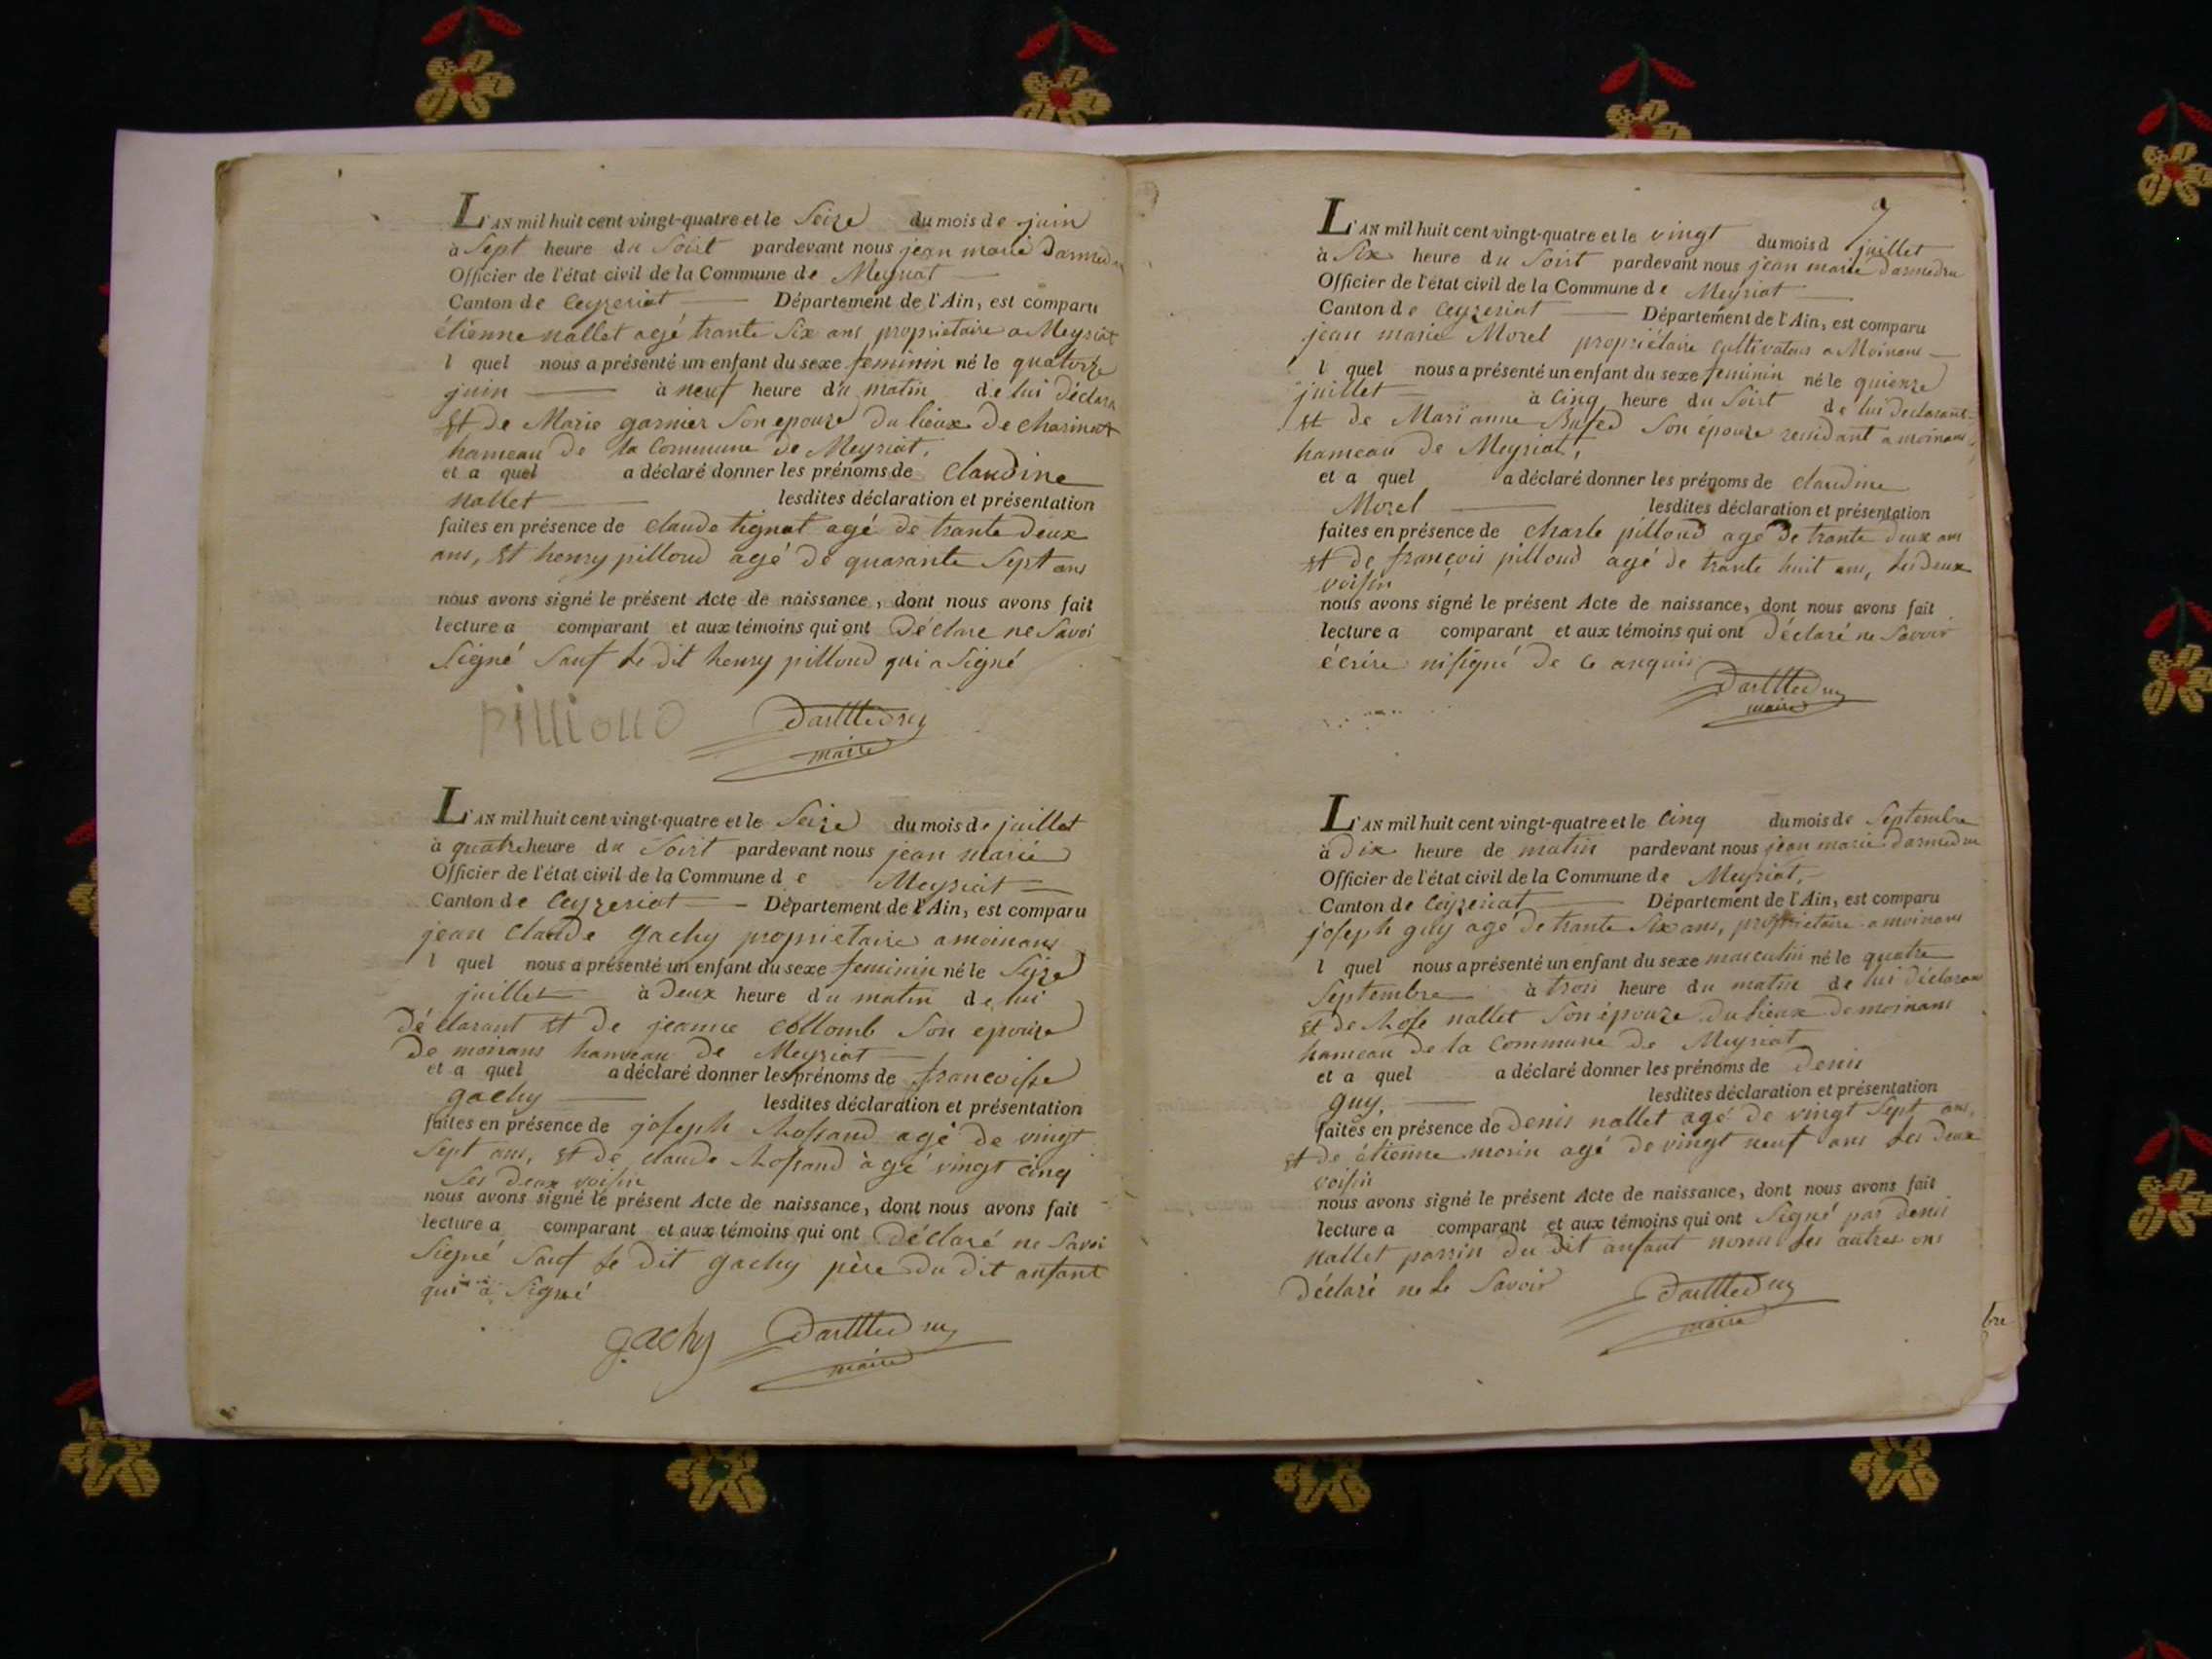 L'AN mil huit cent vingt-quatre et le Seize du mois de juin
à Sept heure du Soirt pardevant nous jean marie Darmedru
Officier de l'état civil de la Commune de Meyriat
Canton de Ceyzeriat Département de l'Ain, est comparu
étienne nallet agé trante Six ans, proprietaire a Meyriat
l quel nous a présenté un enfant du sexe feminin né le quatorze
juin à neuf heure du matin de lui déclara
Et de Marie garnier Son epouze du lieux de charinat
hameau de la Commune de Meyriat,
et a quel a déclaré donner les prénoms de Claudine
nallet lesdites déclaration et présentation
faites en présence de Claude tignat agé de trante deux
ans, Et henry pilloud agé de quarante Sept ans
nous avons signé le présent Acte de naissance, dont nous avons fait
lecture a comparant et aux témoins qui ont Déclare ne Savoi
Signé Sauf le dit henry pilloud qui a Signé
pilliouD Darmedru
maire
L'AN mil huit cent vingt-quatre et le Seize du mois de juillet
à quatre heure du Soirt pardevant nous jean marie
Officier de l'état civil de la Commune de Meyriat
Canton de Ceyzeriat Département de l'Ain, est comparu
jean Claude gachy proprietaire a moinans
l quel nous a présenté un enfant du sexe feminin né le Seize
juillet à Deux heure du matin de lui
Déclarant Et de jeanne collomb Son epouze
De moinans hameau de Meyriat
et a quel a déclaré donner les prénoms de francoisse
gachy lesdites déclaration et présentation
faites en présence de joseph Rossand agé de vingt
Sept ans, Et de claude Rossand àgé vingt Cinq
Les deux voisin
nous avons signé le présent Acte de naissance, dont nous avons fait
lecture a comparant et aux témoins qui ont Déclaré ne Savoi
Signé Sauf le dit gachy père du dit anfant
qui a Signé
gachy Darmedru
maire
7
L'AN mil huit cent vingt-quatre et le vingt du mois d juillet
à Six heure du Soirt pardevant nous jean marie Darmedru
Officier de l'état civil de la Commune de Meyriat
Canton de Ceyzeriat Département de l'Ain, est comparu
jean marie Morel propriétaire Cultivateur a Moinans
l quel nous a présenté un enfant du sexe feminin né le quienze
juillet à Cinq heure du Soirt de lui declarant
Et de Marianne Son épouze residant a moinans
hameau de Meyriat,
et a quel a déclaré donner les prénoms de claudine
Morel lesdites déclaration et présentation
faites en présence de Charle pilloud agé de trante deux ans
Et de françois pilloud agé de trante huit ans, les deux
voisin
nous avons signé le présent Acte de naissance, dont nous avons fait
lecture a comparant et aux témoins qui ont Déclaré ne Savoir
écrire ni signé de ce anquis
Darmedru
maire
L'AN mil huit cent vingt-quatre et le Cinq du mois de Septembre
à Dix heure de matin pardevant nous jean marie Darmedru
Officier de l'état civil de la Commune de Meyriat,
Canton de Ceyzeriat Département de l'Ain, est comparu
joseph guy agé de trante Six ans, proprietaire a moinans
l quel nous a présenté un enfant du sexe masculin né le quatre
Septembre à trois heure du matin de lui déclaran
Et de Rose nallet Son épouze du lieux de moinans
hameau de la Commune de Meyriat
et a quel a déclaré donner les prénoms de Denis
guy, lesdites déclaration et présentation
faites en présence de Denis nallet agé de vingt Sept ans,
Et de étienne morin agé de vingt neuf ans Les deux
voisin
nous avons signé le présent Acte de naissance, dont nous avons fait
lecture a comparant et aux témoins qui ont Signé par Denis
nallet parrin du dit anfant les autres ons
Déclaré ne le Savoir
Darmedru
maire
bre